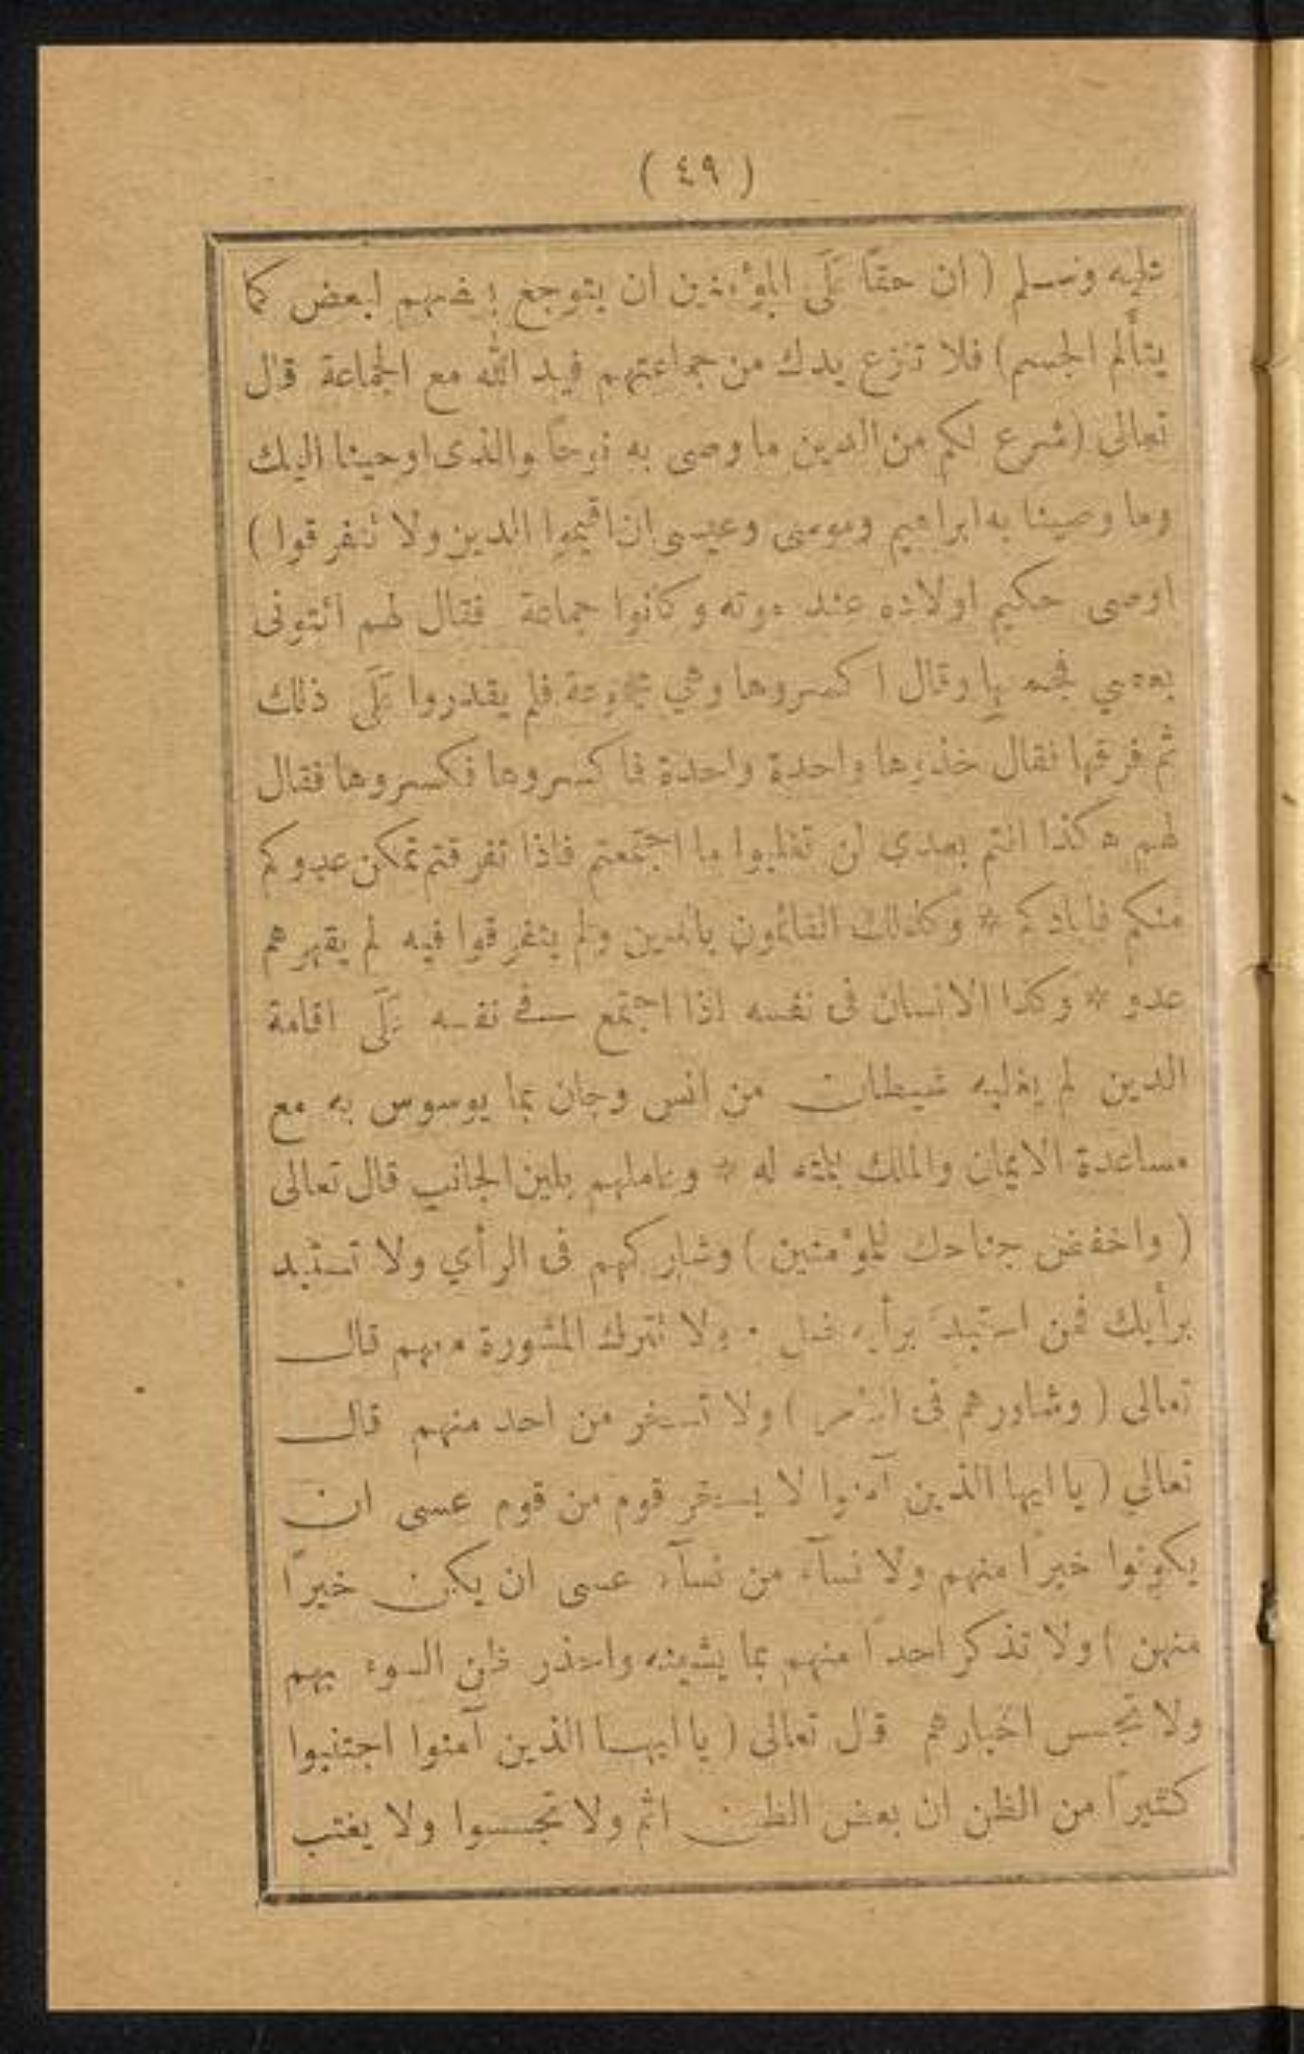 ( ٤٩ )
عليه وسلم ( ان حقًا عَلَى المؤمنين ان يتوجع بعضهم لبعض كما
يتأَلم الجسم) فلا تنزع يدك من جماعتهم فيد الله مع الجماعة قال
تعالى (شرع لكم من الدين ما وصى به نوحًا والذى اوحينا اليك
وما وصينا به ابراهيم وموسى وعيسى ان اقيموا الدين ولا تتفرقوا )
اوصى حكيم اولاده عند موته وكانوا جماعة فقال لهم ائتونى
بعصي فجمعها وقال اكسروها وهي مجموعة فلم يقدروا عَلَى ذلك
ثم فرقها فقال خذوها واحدة واحدة فاكسروها فكسروها فقال
لهم هكذا انتم بعدي لن تغلبوا ما اجتمعتم فاذا تفرقتم تمكن عدوكم
منكم فابادكم * وكذلك القائمون بالدين ولم يتفرقوا فيه لم يقهرهم
عدو * وكذا الانسان فى نفسه اذا اجتمع في نفسه عَلَى اقامة
الدين لم يغلبه شيطان من انس وجان بما يوسوس به مع
مساعدة الايمان والملك بلمته له * وعاملهم بلين الجانب قال تعالى
( واخفض جناحك للمؤمنين ) وشاركهم فى الرأي ولا تستبد
برأيك فمن استبدَّ برأيه ضل . ولا تترك المشورة معهم قال
تعالى ( وشاورهم فى الامر ) ولا تسخر من احد منهم قال
تعالي ( يا ايها الذين آمنوا لا يسخر قوم من قوم عسى ان
يكونوا خيرًا منهم ولا نسآء من نسآء عسى ان يكن خيرًا
منهن ) ولا تذكر احدًا منهم بما يشينه واحذر ظن السوء بهم
ولا تجسس اخبارهم قال تعالى ( يا ايها الذين آمنوا اجتنبوا
كثيرًا من الظن ان بعض الظن اثم ولا تجسسوا ولا يغتب